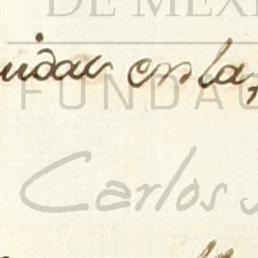 DE MEXI
uidar en la
FUNDAC
Carlos